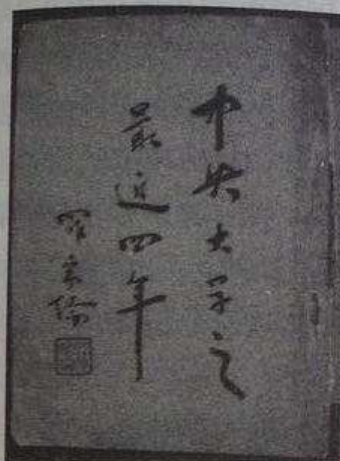 中央大学之
最近四年
罗家伦